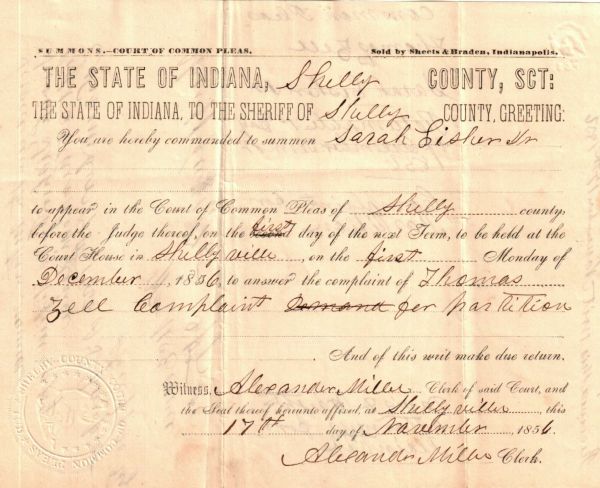 SUMMONS.—COURT OF COMMON PLEAS. Sold by Sheets & Braden, Indianapolis.
THE STATE OF INDIANA, Shelby COUNTY, SCT:
THE STATE OF INDIANA, TO THE SHERIFF OF Shelby COUNTY, GREETING:
You are hereby commanded to summon Sarah Fisher
to appear in the Court of Common Pleas of Shelby county,
before the Judge thereof, on the first day of the next Term, to be held at the
Court House in Shelbyville, on the first Monday of
December, 1856, to answer the complaint of Thomas
Zell Complaint Demand for partition
And of this writ make due return.
Witness, Alexander Miller Clerk of said Court, and
the Seal thereof hereunto affixed, at Shelbyville, this
17th day of November 1856.
Alexander Miller Clerk.